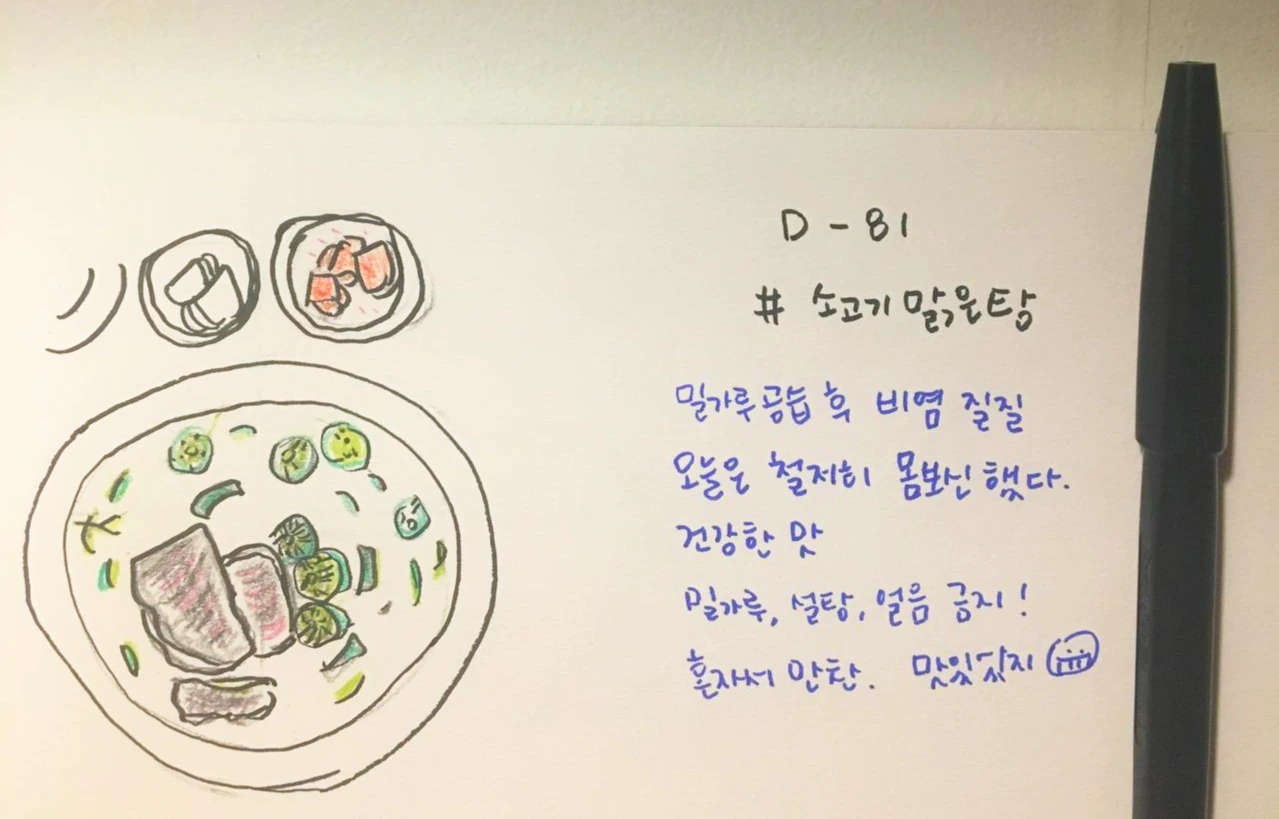 D - 81
# 소고기 맑은탕
밀가루공습 후 비염 질질
오늘은 철저히 몸보신 했다.
건강한 맛
밀가루, 설탕, 얼음 금지!
혼자서 만찬. 맛있닷지